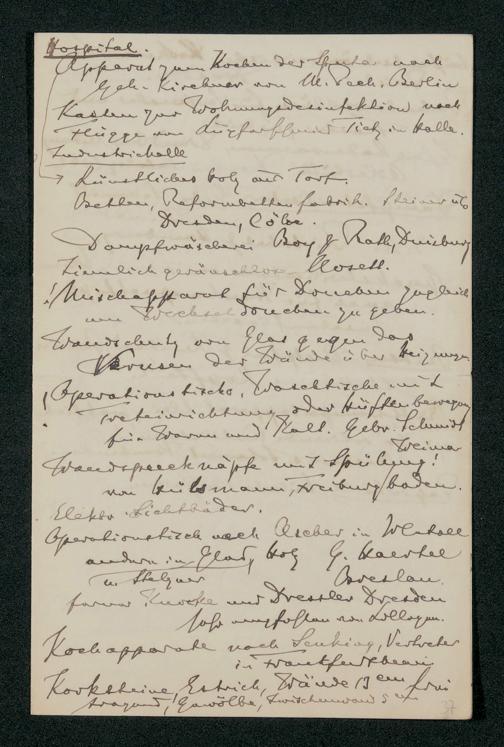 Hospital.
Apparat zum Kochen der Sputa nach
Geh. Kirchner von M. Pech. Berlin
Kasten zur Wohnungsdesinfektion nach
Flügge von Tietz in Halle.
Industriehalle
Künstliches Holz aus Torf.
Betten, Reformbettenfabrik. Steiner u.
Dresden, Cöln.
Dampfwäscherei Rath, Duisburg
Ziemlich geräuschlose Klosett.
! Mischapparat für Douchen zugleich
um Wechseldouchen zu geben.
Wandschutz von Glas gegen das
Verrussen der Wände über Heizungen
! Operationstische, Waschtische mit
Treteinrichtung oder Hüftenbewegung
für Warm und Kalt. Gebr. Schmidt
Weimar
Wandspucknäpfe mit Spülung!
von Hülsmann, Freiburg/Baden.
Elektr. Lichtbäder.
Operationstisch nach Ascher in
andern in Glas, Holz G. Haertel
u. Stelzner Breslau.
ferner Knocke und Dressler Dresden
sehr empfohlen von Collegen.
Kochapparate nach Senking, Vertreter
in Frankfurt
Korksteine, Estrich, Wände 3 cm frei
tragend, Gewölbe, Zwischenwand 5 cm
37